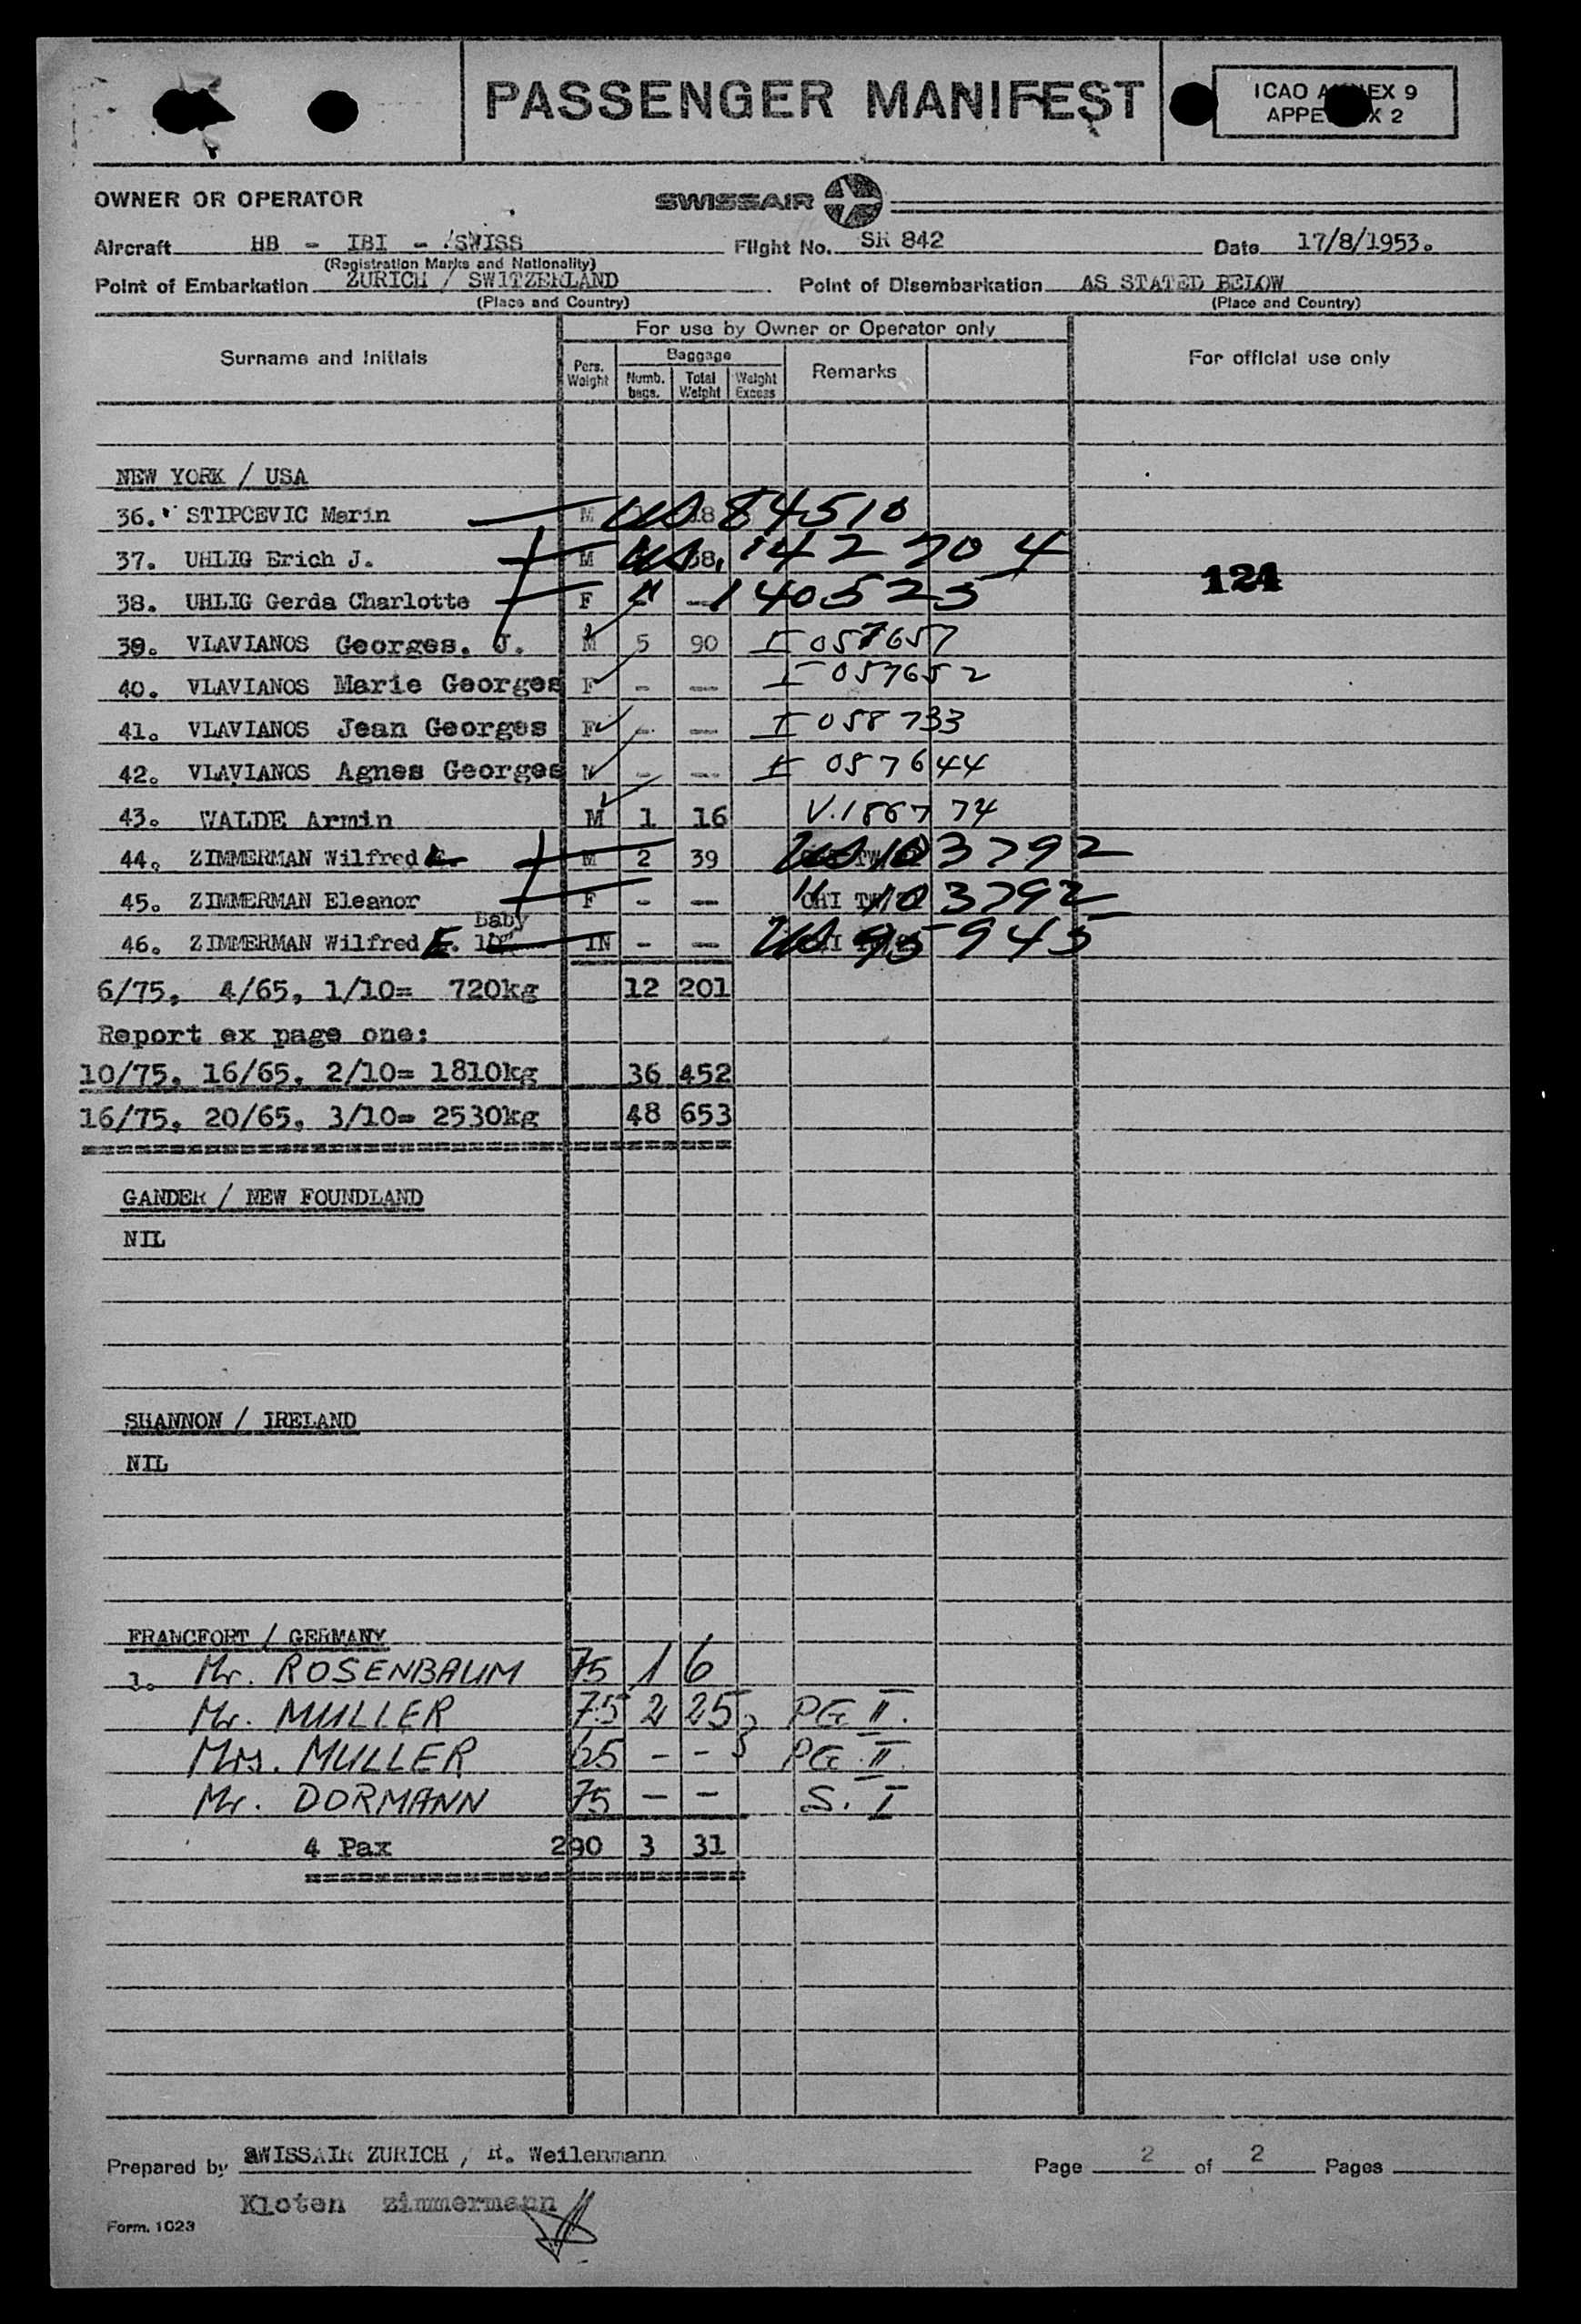 PASSENGER MANIFEST
ICAO ANNEX 9
APPENDIX 2
OWNER OR OPERATOR SWISSAIR
Aircraft HB - IBI - SWISS Flight No. SR 842 Date 17/8/1953.
(Registration Marks and Nationality)
Point of Embarkation ZURICH / SWITZERLAND Point of Disembarkation AS STATED BELOW
(Place and Country) (Place and Country)
For use by Owner or Operator only
Surname and Initials Pers. Weight Baggage Numb. bags. Total Weight Weight Excess Remarks For official use only
NEW YORK / USA
36. STIPCEVIC Marin M 18 US 84510
37. UHLIG Erich J. M 38 US 142204
38. UHLIG Gerda Charlotte F - — " 140525
124
39. VLAVIANOS Georges. J. M 5 90 I 057657
40. VLAVIANOS Marie Georges F - — I 057652
41. VLAVIANOS Jean Georges F - — I 058733
42. VLAVIANOS Agnes Georges M - — I 057644
43. WALDE Armin M 1 16 V.186774
44. ZIMMERMAN Wilfred E. M 2 39 US 103792
45. ZIMMERMAN Eleanor F - — CHI TW " 103792
Baby
46. ZIMMERMAN Wilfred E. IN - — US 95943
6/75, 4/65, 1/10= 720kg 12 201
Report ex page one:
10/75, 16/65, 2/10= 1810kg 36 452
16/75, 20/65, 3/10= 2530kg 48 653
GANDER / NEW FOUNDLAND
NIL
SHANNON / IRELAND
NIL
FRANCFORT / GERMANY
1. Mr. ROSENBAUM 75 1 6
Mr. MULLER 75 2 25 PG II.
Mrs. MULLER 65 - - PG. II.
Mr. DORMANN 75 - - S. I
4 Pax 290 3 31
Prepared by SWISSAIR ZURICH / R. Weilenmann Page 2 of 2 Pages
Kloten zimmermann
Form. 1023